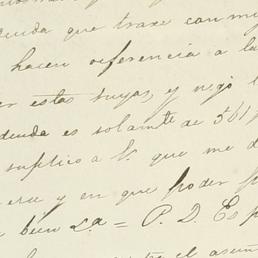 deuda que traxe conmi
hacen referencia a la
er estas suyas, y nego
deuda es solamte de 561
suplico a V. que me d
y en que poder p
bien La = P. D. Es p
el asun